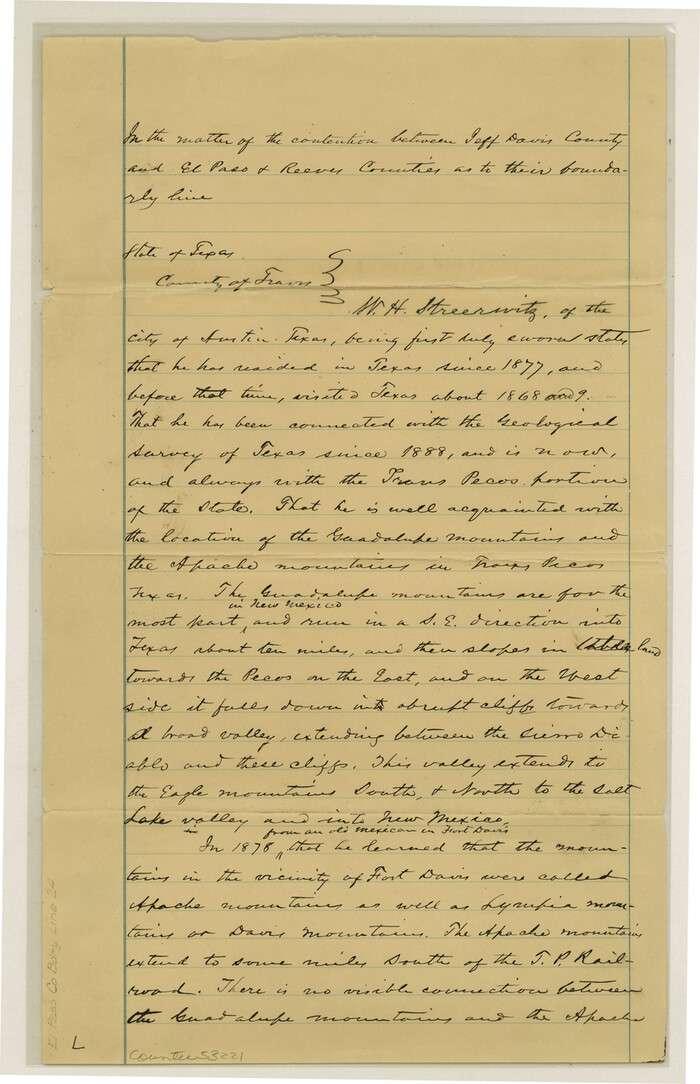 In the matter of the contention between Jeff Davis County
and El Paso & Reeves Counties as to their bounda-
ry line
State of Texas
County of Travis
W. H. Streeruwitz, of the
city of Austin Texas, being first duly sworn states
that he has resided in Texas since 1877, and
before that time, visited Texas about 1868 and 9.
That he has been connected with the Geological
Survey of Texas since 1888, and is now,
and always with the Trans Pecos portion
of the State. That he is well acquainted with
the location of the Guadalupe mountains and
the Apache mountains in Trans Pecos
Texas. The Guadalupe mountains are for the
in New Mexico
most part, and run in a S. E. direction into
Texas about ten miles, and then slopes in table land
towards the Pecos on the East, and on the West
side it falls down in abrupt cliffs towards
a broad valley, extending between the Sierra Di-
ablo and these cliffs. This valley extends to
the Eagle mountains South, & North to the Salt
Lake valley and into New Mexico.
from an old Mexican in Fort Davis
In 1878, that he learned that the moun-
tains in the vicinity of Fort Davis were called
Apache mountains as well as Lympia moun-
tains or Davis Mountains. The Apache mountains
extend to some miles South of the T. P. Rail-
road. There is no visible connection between
the Guadalupe mountains and the Apache
El Paso Co Bdry Line 24
L
Counter 53221